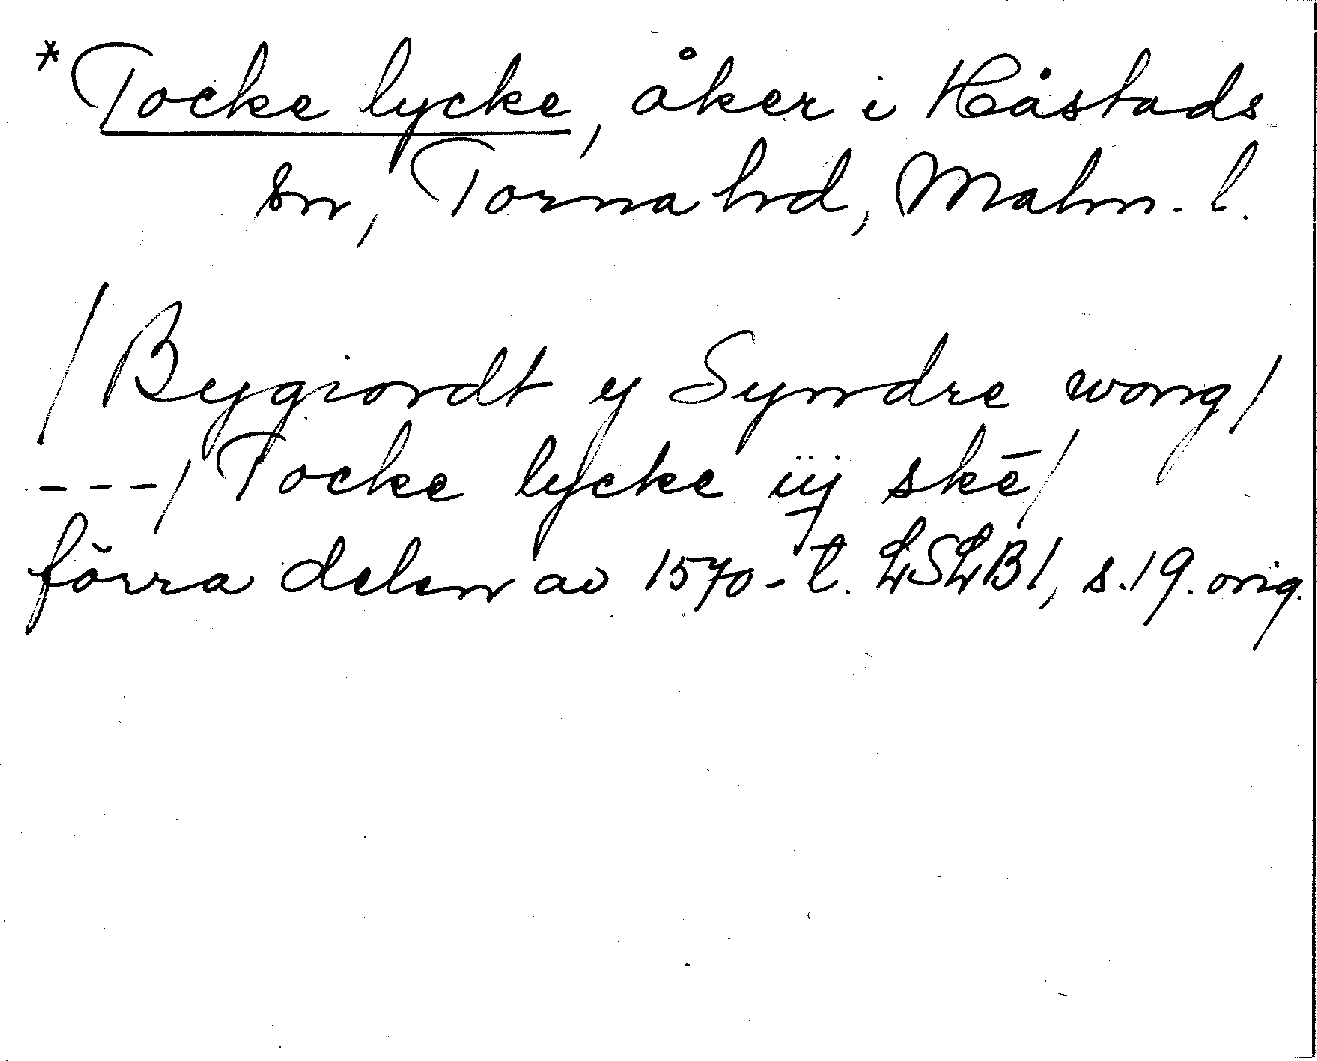 *Tocke lycke, åker i Håstads
sn, Torna hd, Malm. l.
/Bygiordt y Syndre wong/
---/Tocke lycke iij skē/
förra delen av 1570-t. LSLB1, s. 19. orig.